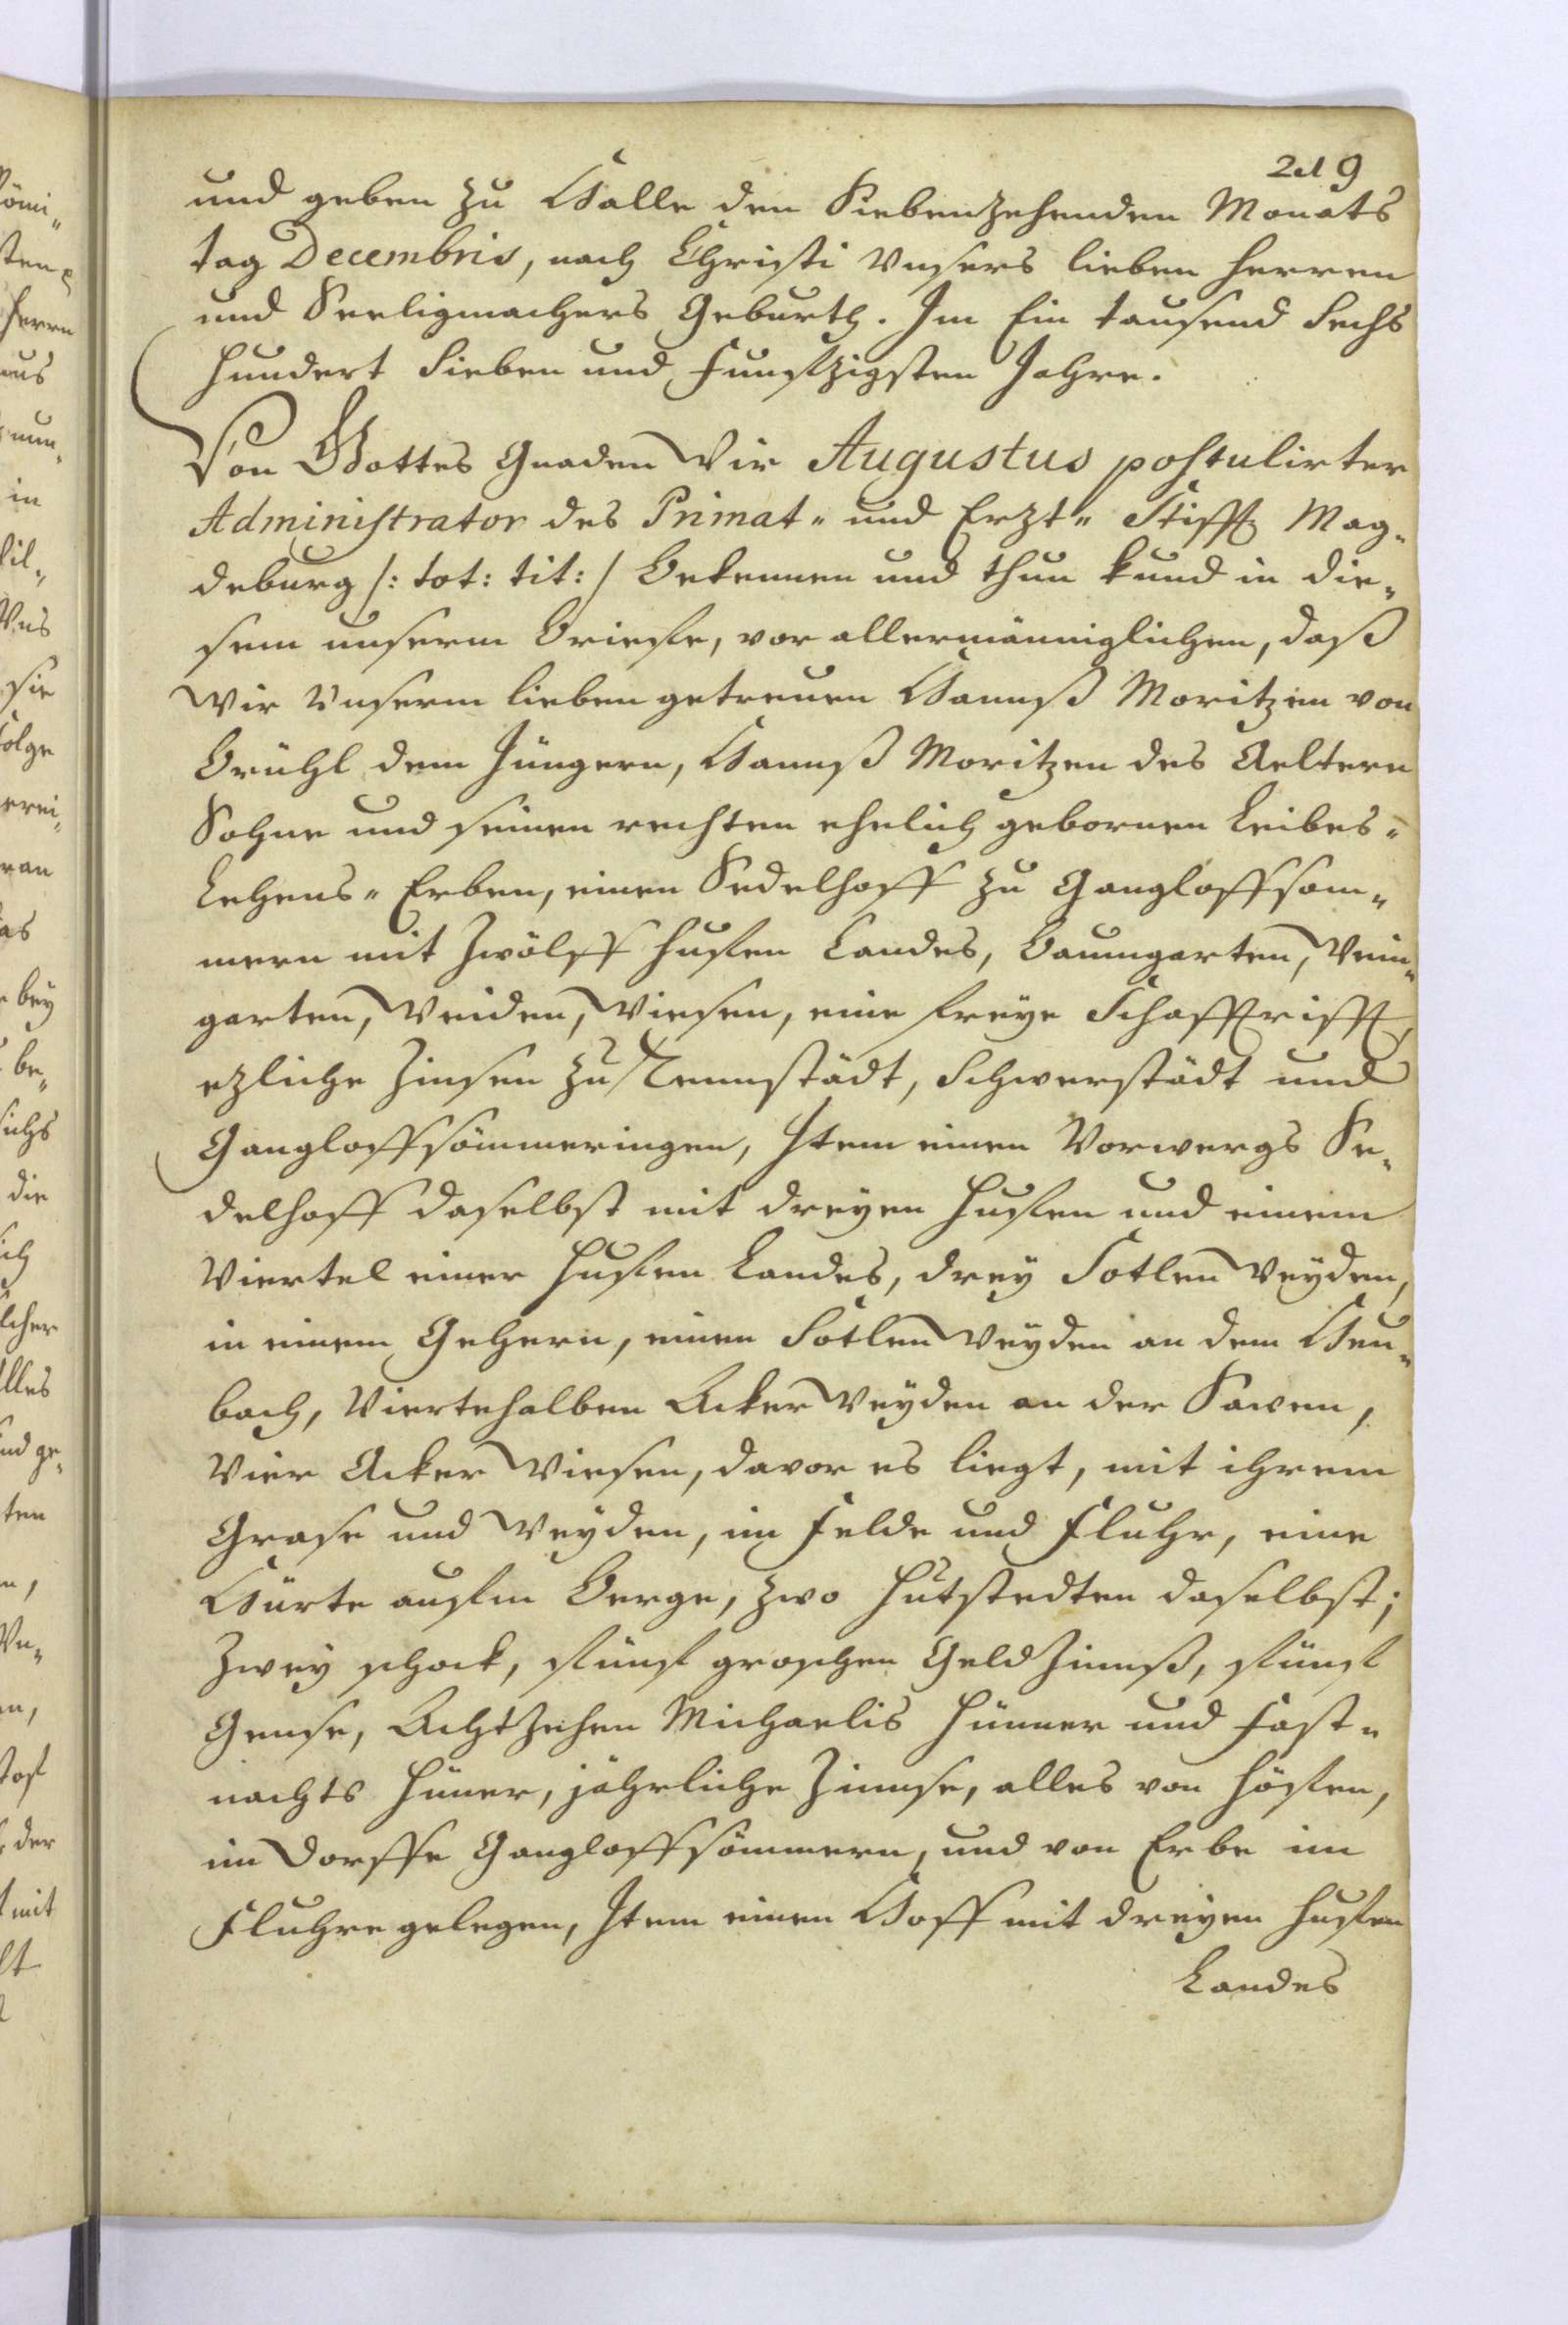 219
und geben zu Halle den Siebenzehenden Monats
tag Decembris, nach Christi Vnsers lieben Herren
und Seeligmachers Geburth. Im Ein tausend Sechs
Hundert Sieben und Funfzigsten Jahre.
Von Gottes Gnaden Wir Augustus postulirter
Administrator des Primat- und Erzt- Stifft Mag-
deburg /: tot: tit: / Bekennen und thun kund in die-
sem unserm Briefe, vor allermänniglichen, daß
Wir Vnserm lieben getreuen Hannß Moritzen von
Brühl dem Jüngern, Hannß Moritzen des Aeltern
Sohne und seinen rechten ehelich gebornen Leibes-
Lehens- Erben, einen Sedelhoff zu Gangloffsöm-
mern mit Zwölff Hufen Landes, Baumgarten, Wein-
garten, Weiden, Wiesen, eine freye Schafftrifft,
ezliche Zinsen zu Tennstädt, Schwerstädt und
Gangloffsömmeringen, Item einen Vorwergs Se-
delhoff daselbst mit dreyen Hufen und einem
Viertel einer Hufen Landes, drey Sotlen Weyden,
in einem Gehern, einen Sotlen Weyden an dem Heu-
bach, Viertehalben Acker Weyden an der Sawen,
Vier Acker Wiesen, davor es liegt, mit ihrem
Grase und Weyden, im Felde und Fluhr, eine
Hürte aufm Berge, zwo Hutstedten daselbst;
Zwey schock, fünf groschen Geld Zinnß, fünf
Gense, Achtzehen Michaelis Hünner und Fast-
nachts Hüner, jährliche Zinnse, alles von Höfen,
im Dorffe Gangloffsömmern, und von Erbe im
Fluhre gelegen, Item einen Hoff mit dreyen Hufen
Landes